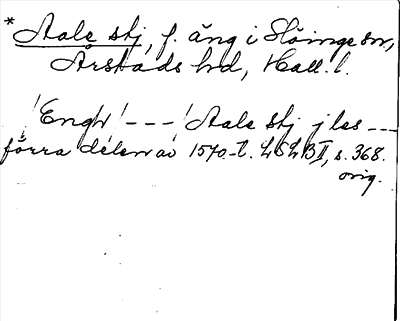 * Aale skj, f. äng i Slöinge sn,
Årstads hd, Hall. l.
'Engh' --- 'Aale skj j les ---
förra delen av 1570-t. HSH BII, s. 368.
orig.